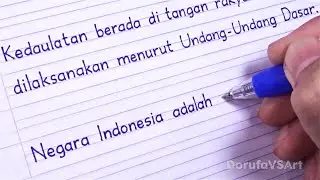 Kedaulatan berada di tangan rakya
dilaksanakan menurut Undang-Undang Dasar.
Negara Indonesia adalah
DorufoVSArt